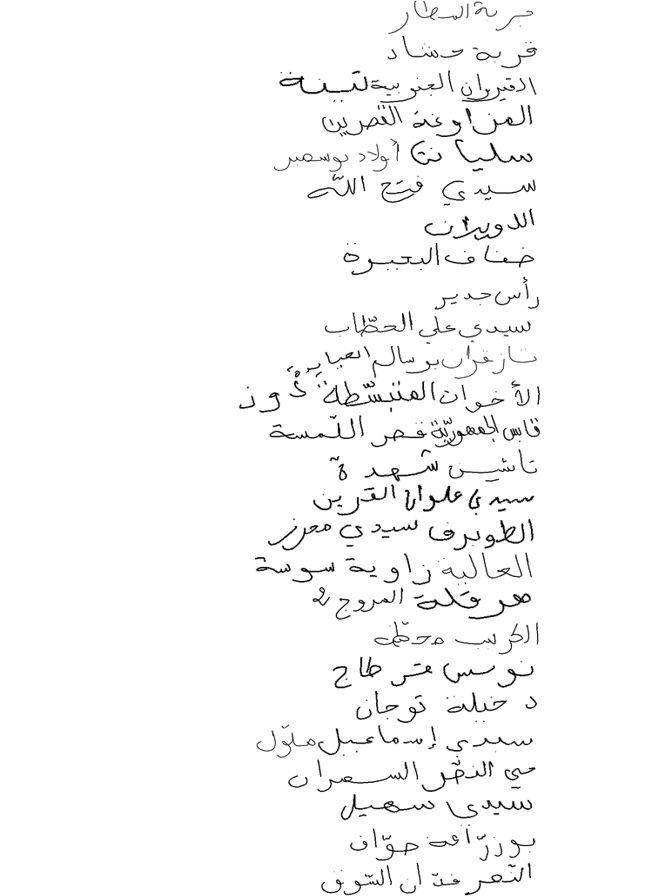 جربة المطار
قرية حشاد
القيروان الجنوبية لتينة
المزاوغة القصرين
أولاد بوسمير
سيدي فتح الله
الدويرات
ضفاف البحيرة
رأس جدير
سيدي علي الحطّاب
تازغران بوسالم
الأخوات
قابس الجمهوريّة قصر اللّمسة
تاشين شهدة
سيدي علوان القرين
الطويرف سيدي معرز
العالية زاوية سوسة
هرقلة المروج 2
الكريب
تونس قرطاج
دخيلة توجان
سيدي إسماعيل ملّول
حي النصر السعران
سيدي سهيل
بوزرّاعة حوّاف
السّوق